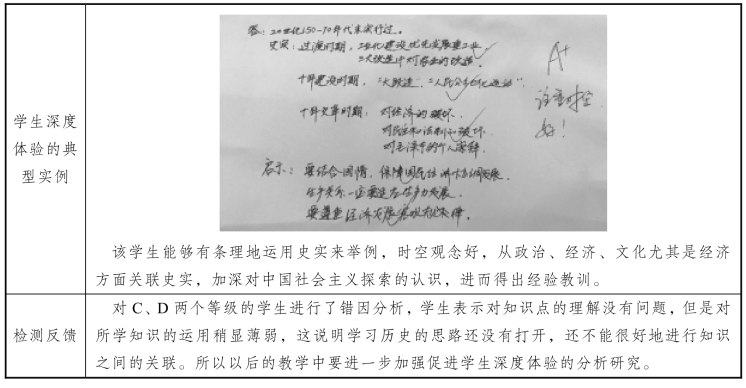 学生深度
体验的典
型实例
答：20世纪50-70年代未实行过。
史实：过渡时期，工业化建设优先发展重工业。
三大改造中对农业的改造。
十年建设时期，“大跃进”、“人民公社化运动”。
十年文革时期：对经济的破坏.
对民主和法制的破坏.
对毛泽东的个人崇拜.
启示：要结合国情，
生产关系一定要适应生产力发展.
要遵重经济发展客观规律.
A+
注重时空
好！
该学生能够有条理地运用史实来举例，时空观念好，从政治、经济、文化尤其是经济
方面关联史实，加深对中国社会主义探索的认识，进而得出经验教训。
检测反馈
对 C、D 两个等级的学生进行了错因分析，学生表示对知识点的理解没有问题，但是对
所学知识的运用稍显薄弱，这说明学习历史的思路还没有打开，还不能很好地进行知识
之间的关联。所以以后的教学中要进一步加强促进学生深度体验的分析研究。